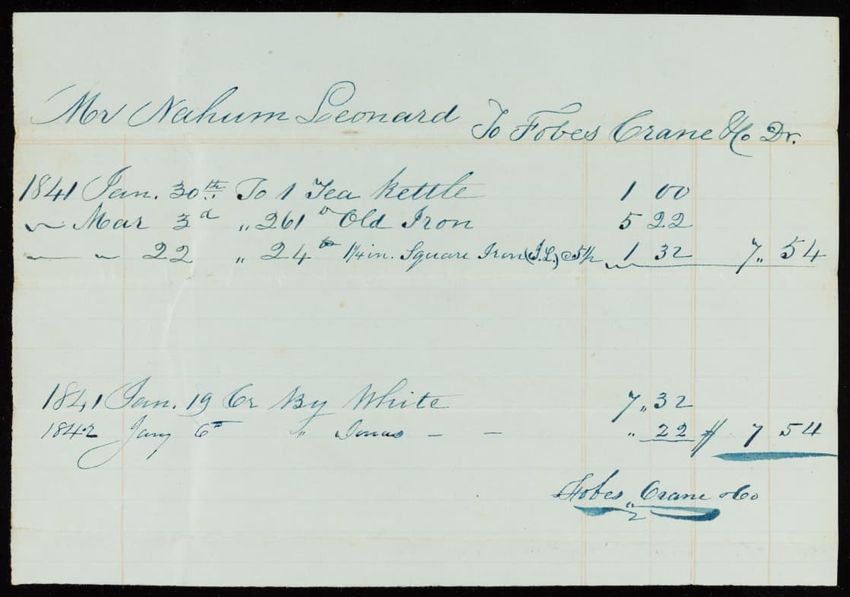 Mr Nahum Leonard To Fobes Crane & Co Dr.
1841 Jan. 30th To 1 Tea Kettle 1 00
" Mar 3d " 261 lb Old Iron 5 22
" " 22 " 24 lb 1 1/4 in. Square Iron (J.L.) @ 5 1/2 1 32 7,, 54
1841 Jan. 19 Cr By White 7,, 32
1842 Jany 6th " " 22 $ 7 54
Fobes, Crane & Co